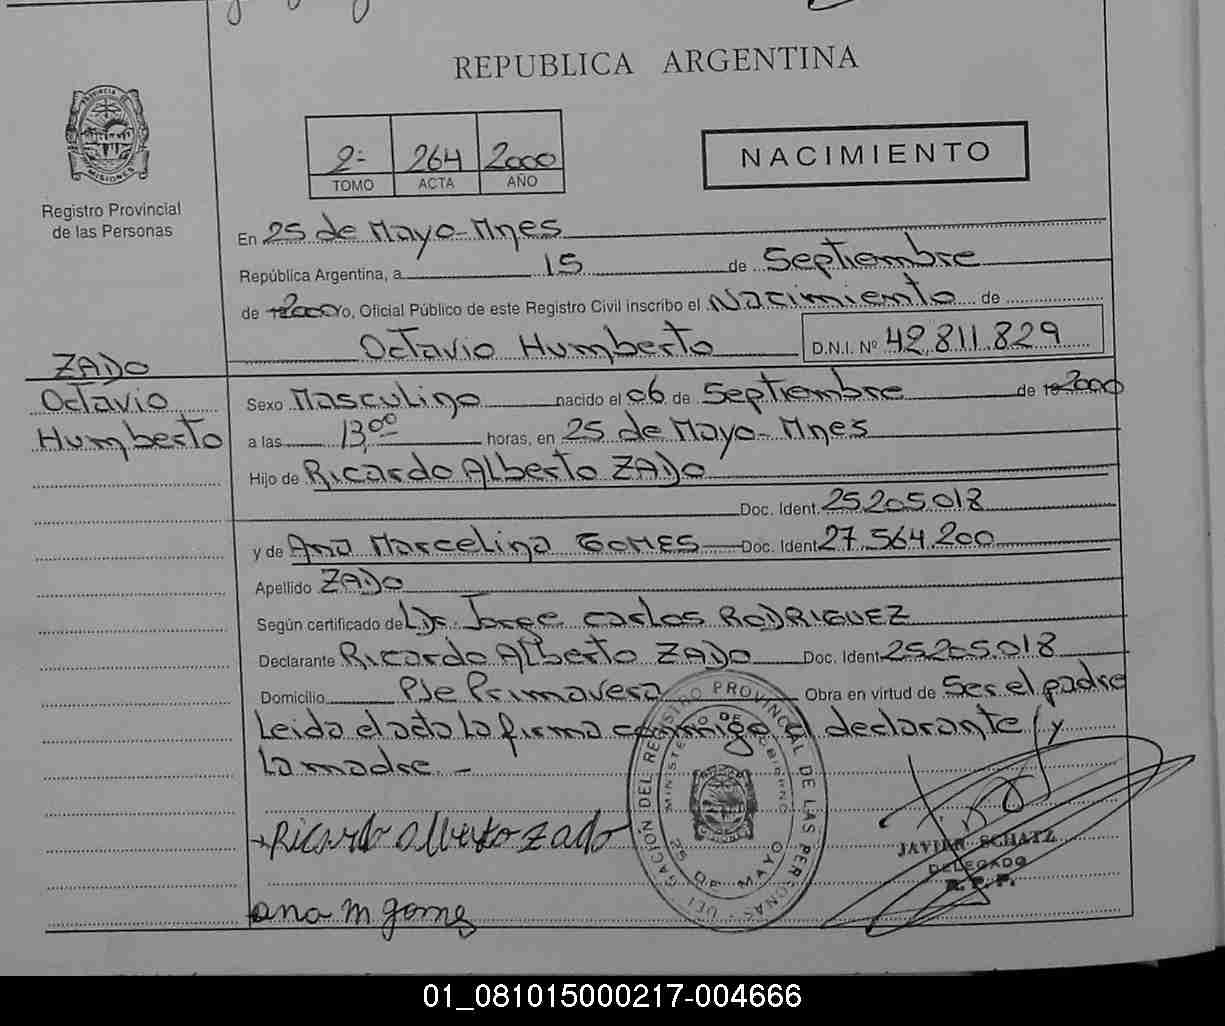 REPUBLICA ARGENTINA
PROVINCIA
MISIONES
Registro Provincial
de las Personas
2=
264
2000
TOMO
ACTA
AÑO
NACIMIENTO
En 25 de Mayo-Mnes
República Argentina, a 15 de Septiembre
de 2000 Yo, Oficial Público de este Registro Civil inscribo el Nacimiento de
Octavio Humberto
D.N.I. Nº 42.811.829
ZADO
Octavio
Humberto
Sexo Masculino nacido el 06 de Septiembre de 19 2000
a las 13,00 horas, en 25 de Mayo-Mnes
Hijo de Ricardo Alberto ZADO
Doc. Ident. 25.205.018
y de Ana Marcelina GOMES Doc. Ident 27.564.200
Apellido ZADO
Según certificado de L Dr. Jorge Carlos RODRIGUEZ
Declarante Ricardo Alberto ZADO Doc. Ident 25.205.018
Domicilio Pje Primavera Obra en virtud de Ser el padre
Leida el acta la firma conmigo el declarante / y
La madre. -
Ricardo alberto zado
ana m gomes
DELEGACIÓN DEL REGISTRO PROVINCIAL DE LAS PERSONAS
MINISTERIO DE GOBIERNO
25 DE MAYO
JAVIER SCHATZ
DELEGADO
R. P. P.
01_081015000217-004666